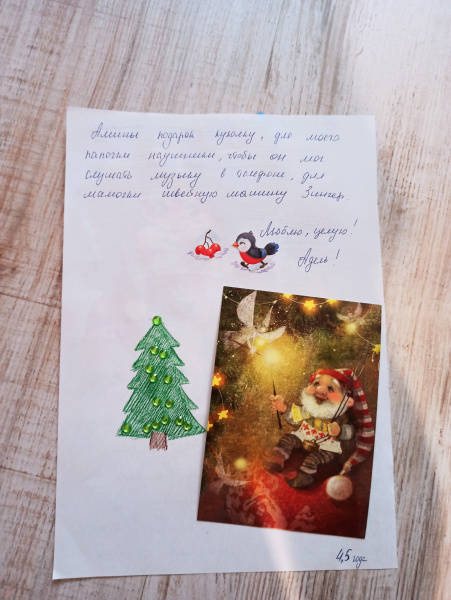 Алины подарок куколку, для моего
папочки наушники, чтобы он мог
слушать музыку в телефоне, для
мамочки швейную машинку Зингер.
Люблю, целую!
Адель!
4,5 года